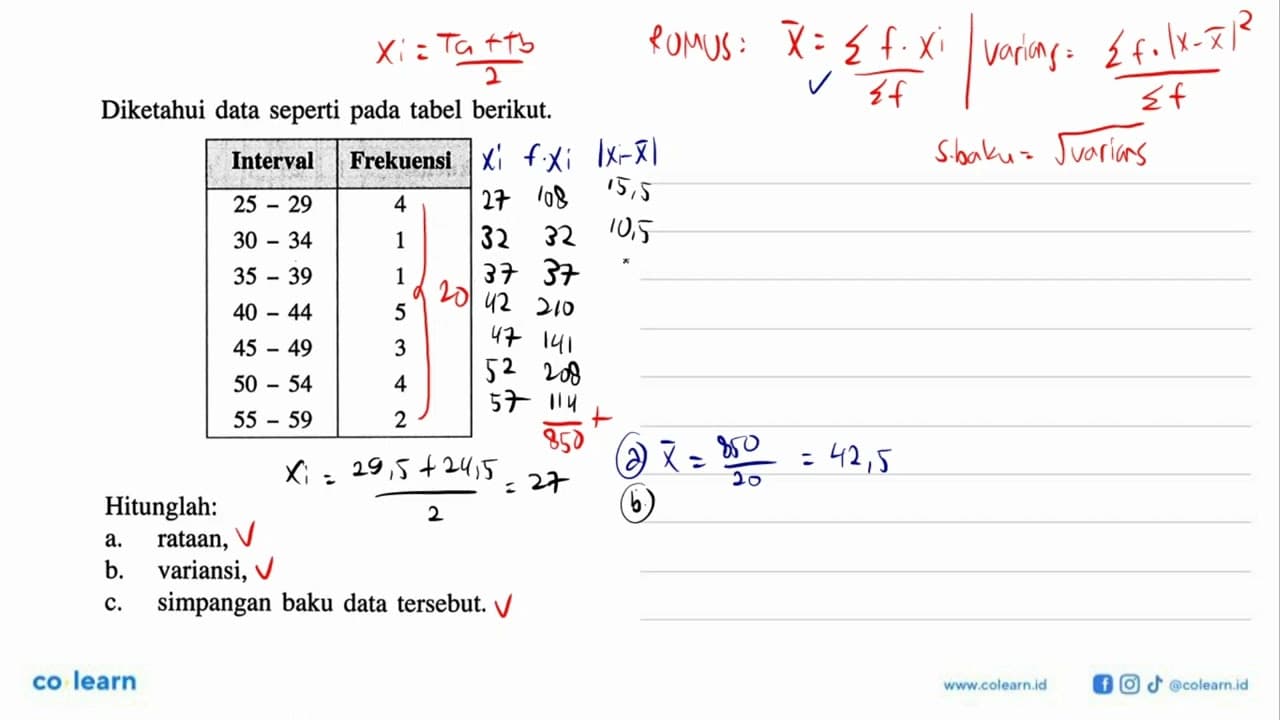 xi = Ta + tb / 2
RUMUS: x̄ = Σ f . xi / Σf | varians = Σ f . |x - x̄|² / Σf
s.baku = √varians
Diketahui data seperti pada tabel berikut.
Interval Frekuensi xi f.xi |xi-x̄|
25 – 29 4 27 108 15,5
30 – 34 1 32 32 10,5
35 – 39 1 37 37
40 – 44 5 42 210
45 – 49 3 47 141
50 – 54 4 52 208
55 – 59 2 57 114 +
20
850
xi = 29,5 + 24,5 / 2 = 27
a) x̄ = 850 / 20 = 42,5
b.
Hitunglah:
a. rataan, ✓
b. variansi, ✓
c. simpangan baku data tersebut. ✓
co learn
www.colearn.id @colearn.id